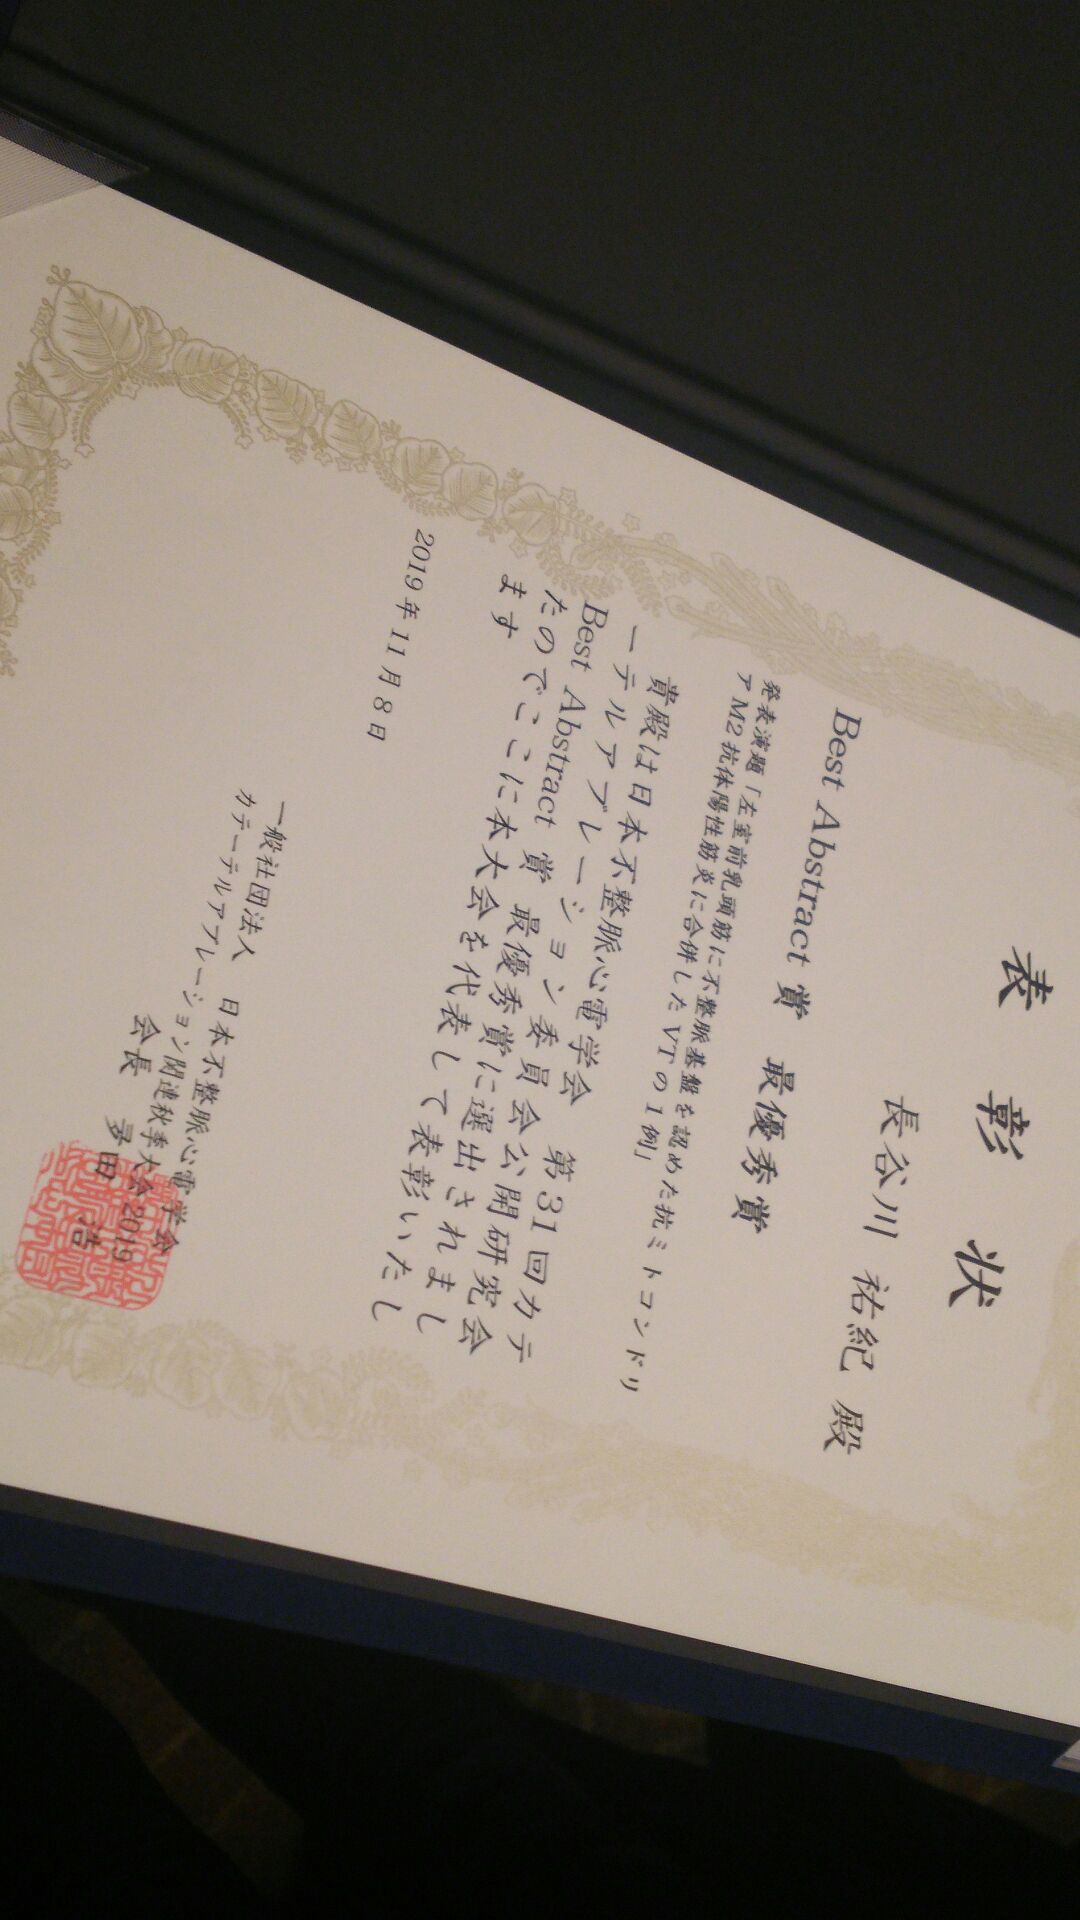 表彰状
長谷川 祐紀 殿
Best Abstract 賞 最優秀賞
発表演題「左室前乳頭筋に不整脈基盤を認めた抗ミトコンドリ
ア M2 抗体陽性筋炎に合併した VT の 1 例」
貴殿は日本不整脈心電学会 第31回カテ
ーテルアブレーション委員会公開研究会
Best Abstract 賞 最優秀賞に選出されまし
たのでここに本大会を代表して表彰いたし
ます
2019 年 11 月 8 日
一般社団法人 日本不整脈心電学会
カテーテルアブレーション関連秋季大会2019
会長 夛田 浩